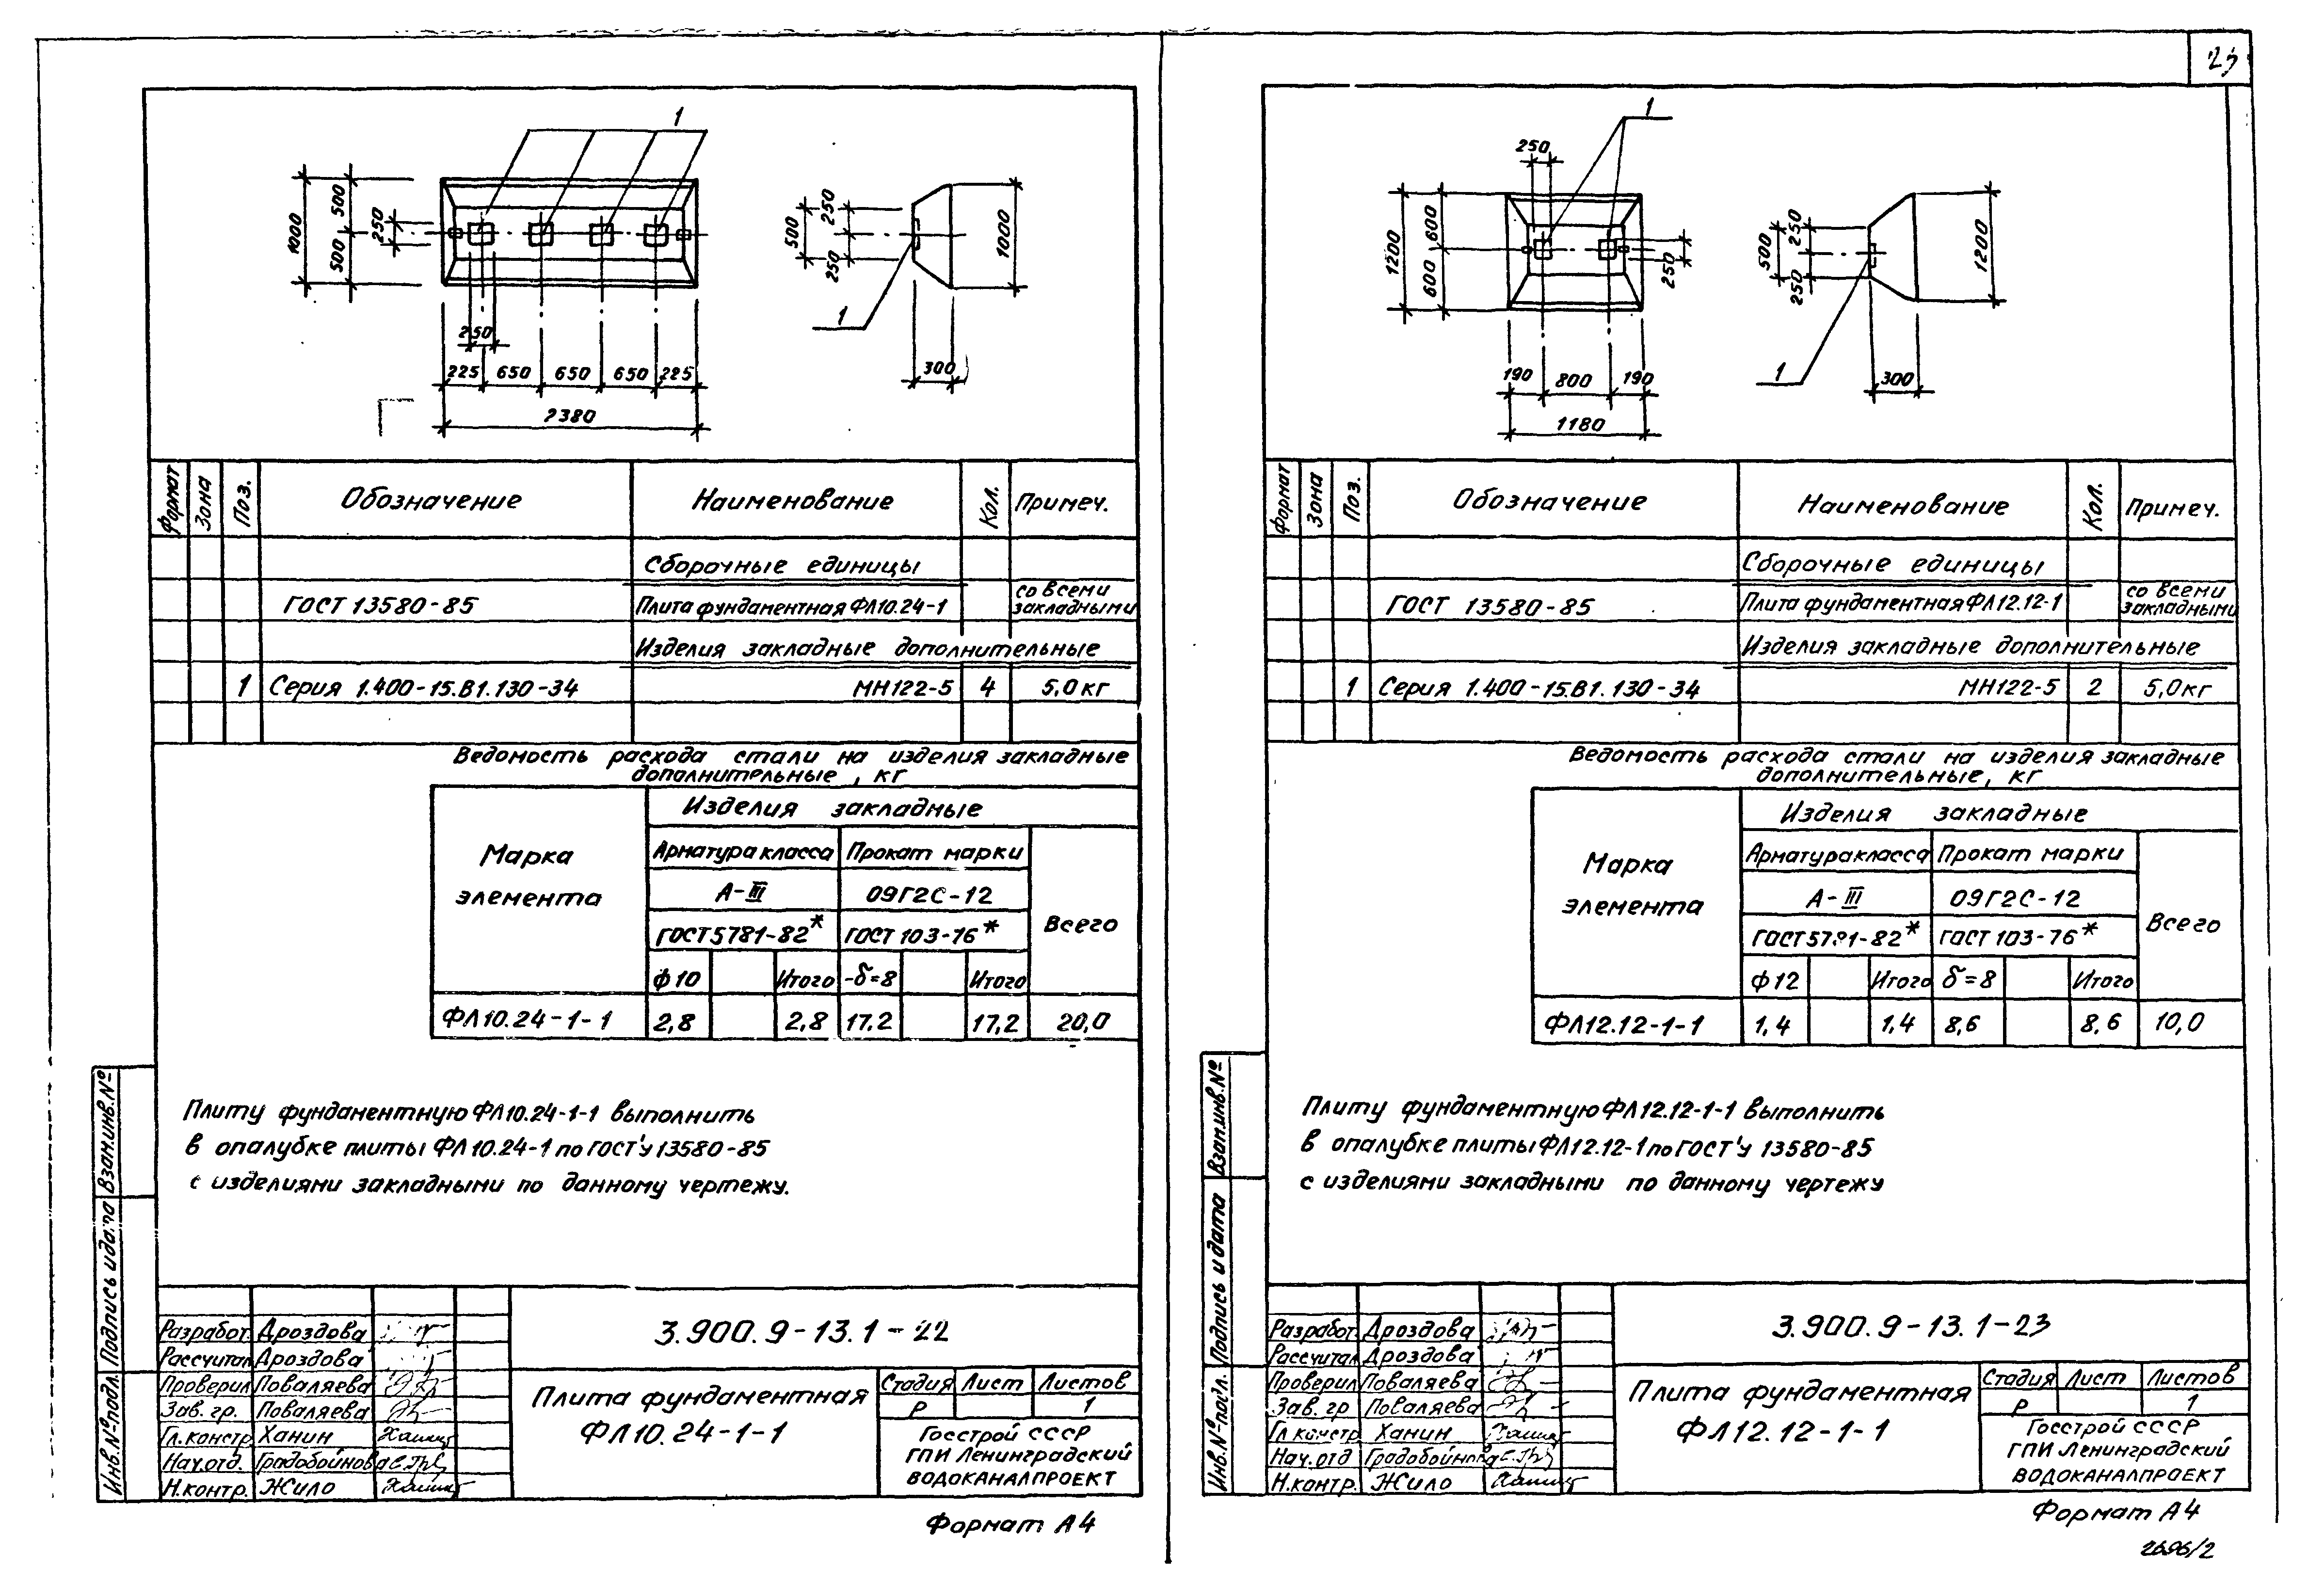 23
1
1000
500
500
250
250
225 650 650 650 225
2380
500
250
250
1000
1
300
Формат Зона Поз. Обозначение Наименование Кол. Примеч.
Сборочные единицы
ГОСТ 13580-85 Плита фундаментная ФЛ10.24-1 со всеми закладными
Изделия закладные дополнительные
1 Серия 1.400-15.В1.130-34 МН122-5 4 5,0кг
Ведомость расхода стали на изделия закладные
дополнительные, кг
Марка элемента
Изделия закладные
Арматура класса Прокат марки Всего
А-III 09Г2С-12
ГОСТ 5781-82* ГОСТ 103-76*
ф10 Итого -δ=8 Итого
ФЛ10.24-1-1 2,8 2,8 17,2 17,2 20,0
Плиту фундаментную ФЛ10.24-1-1 выполнить
в опалубке плиты ФЛ10.24-1 по ГОСТ'у 13580-85
с изделиями закладными по данному чертежу.
Взам.инв.№
Подпись и дата
Инв.№ подл.
3.900.9-13.1-22
Разработ. Дроздова
Рассчитал Дроздова
Проверил Поваляева
Зав. гр. Поваляева
Гл.констр. Ханин
Нач.отд. Градобойнова
Н.контр. Жило
Плита фундаментная
ФЛ10.24-1-1
Стадия Лист Листов
Р 1
Госстрой СССР
ГПИ Ленинградский
ВОДОКАНАЛПРОЕКТ
Формат А4
1
250
1200
600
600
250
190 800 190
1180
500
250
250
1200
1
300
Формат Зона Поз. Обозначение Наименование Кол. Примеч.
Сборочные единицы
ГОСТ 13580-85 Плита фундаментная ФЛ12.12-1 со всеми закладными
Изделия закладные дополнительные
1 Серия 1.400-15.В1.130-34 МН122-5 2 5,0кг
Ведомость расхода стали на изделия закладные
дополнительные, кг
Марка элемента
Изделия закладные
Арматура класса Прокат марки Всего
А-III 09Г2С-12
ГОСТ 5781-82* ГОСТ 103-76*
ф12 Итого δ=8 Итого
ФЛ12.12-1-1 1,4 1,4 8,6 8,6 10,0
Плиту фундаментную ФЛ12.12-1-1 выполнить
в опалубке плиты ФЛ12.12-1 по ГОСТ'у 13580-85
с изделиями закладными по данному чертежу
Взам.инв.№
Подпись и дата
Инв.№ подл.
3.900.9-13.1-23
Разработ. Дроздова
Рассчитал Дроздова
Проверил Поваляева
Зав. гр Поваляева
Гл.констр. Ханин
Нач.отд Градобойнова
Н.контр. Жило
Плита фундаментная
ФЛ12.12-1-1
Стадия Лист Листов
Р 1
Госстрой СССР
ГПИ Ленинградский
ВОДОКАНАЛПРОЕКТ
Формат А4
2696/2